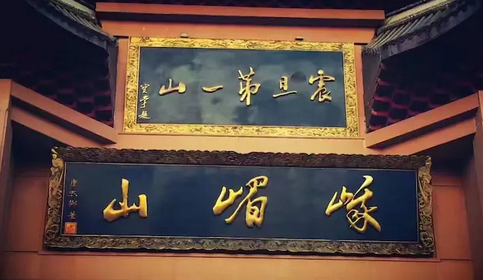 震旦第一山
峨嵋山